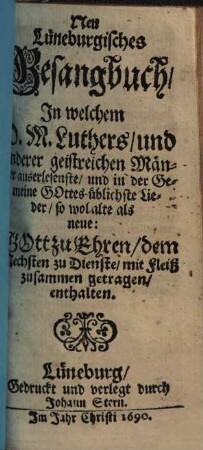 Neu
Lüneburgisches
Gesangbuch/
In welchem
D. M. Luthers/und
anderer geistreichen Män-
ner auserlesenste/ und in der Ge-
meine GOttes üblichste Lie-
der/ so wol alte als
neue:
GOtt zu Ehren/dem
Nechsten zu Dienste/ mit Fleiß
zusammen getragen/
enthalten.
Lüneburg/
Gedruckt und verlegt durch
Johann Stern.
Im Jahr Christi 1690.